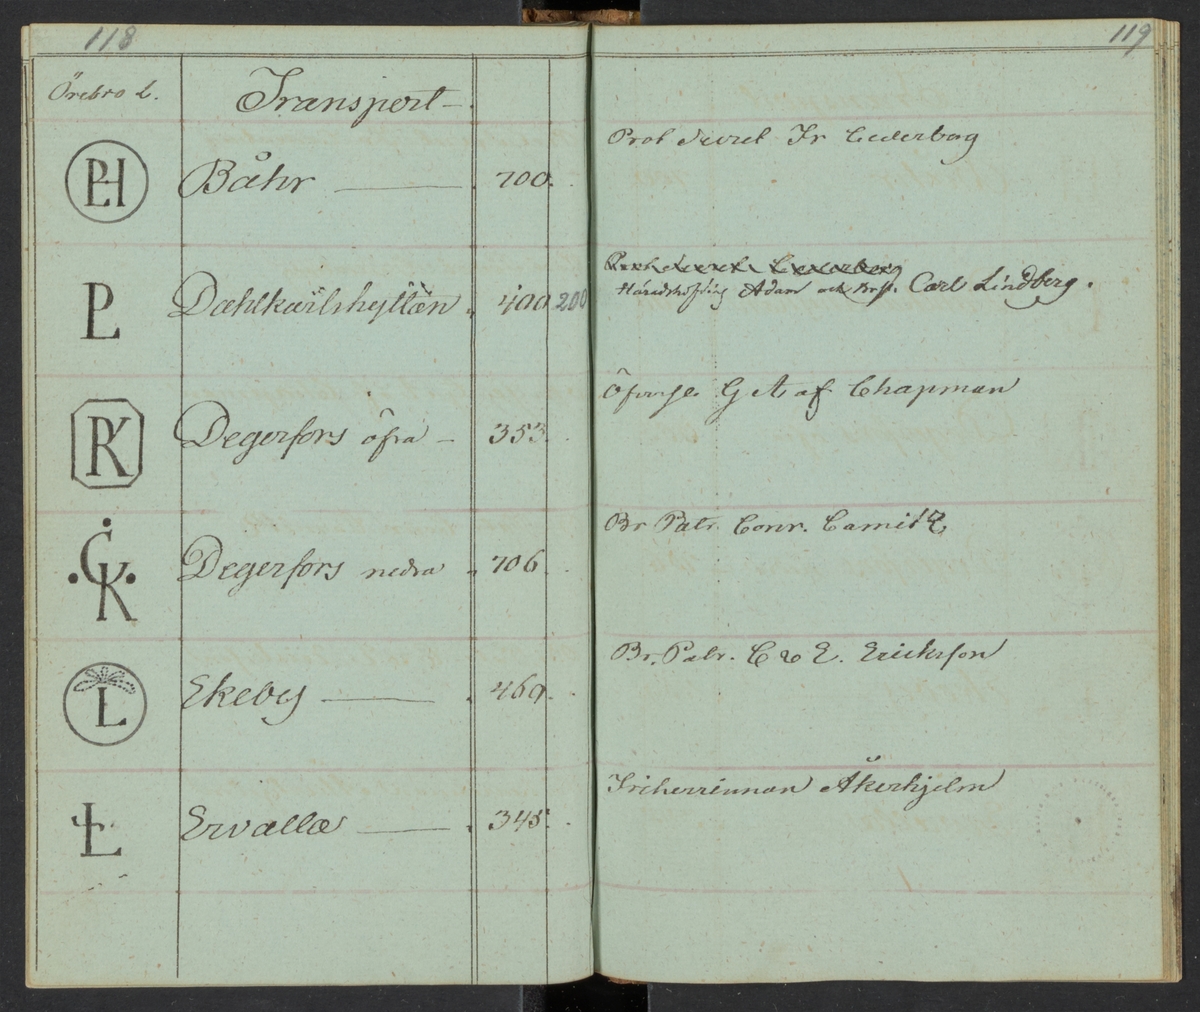 118
119
Örebro L.
Transport
PH
Båhr 700.
Prot Secret Fr Cederborg
PL
Dahlkarlshyttan 400 200
Prot Secret Cederborg
Häradshöfding Adam och Brp. Carl Lindberg.
RK
Degerfors öfra 353.
G A af Chapman
CK
Degerfors nedra 706
Br Patr. Conr. Camitz
L
Ekeby 460.
Br. Patr. C o E. Erickson
L
Ervalla 345.
Friherrinnan Åkerhjelm